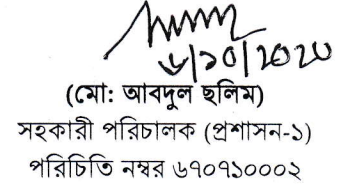 ৬/১০/২০২০
(মো: আবদুল ছলিম)
সহকারী পরিচালক (প্রশাসন-১)
পরিচিতি নম্বর ৬৭০৭১০০০২